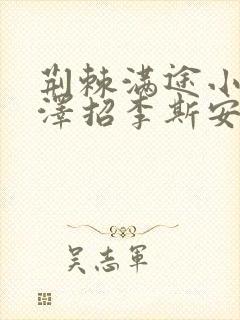 荆棘满途小
泽招李斯安
吴志軍